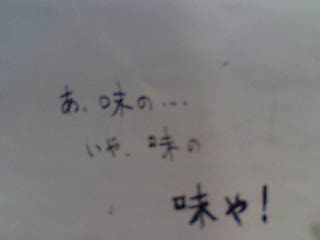 あ、味の…
いや、味の
味や！